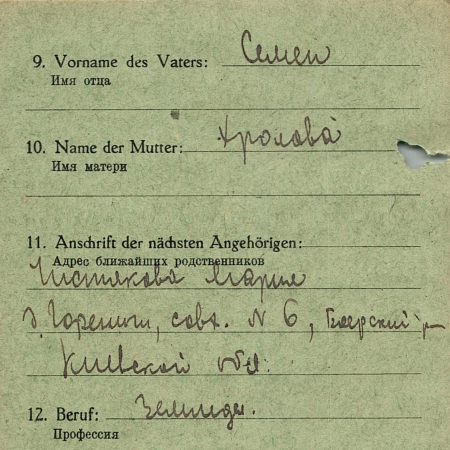 9. Vorname des Vaters: Семен
Имя отца
10. Name der Mutter: Фролова
Имя матери
11. Anschrift der nächsten Angehörigen:
Адрес ближайших родственников
Чистякова Мария
д. Горенычи, совх. N 6, Боярский р-
Киевской обл.
12. Beruf:
Профессия